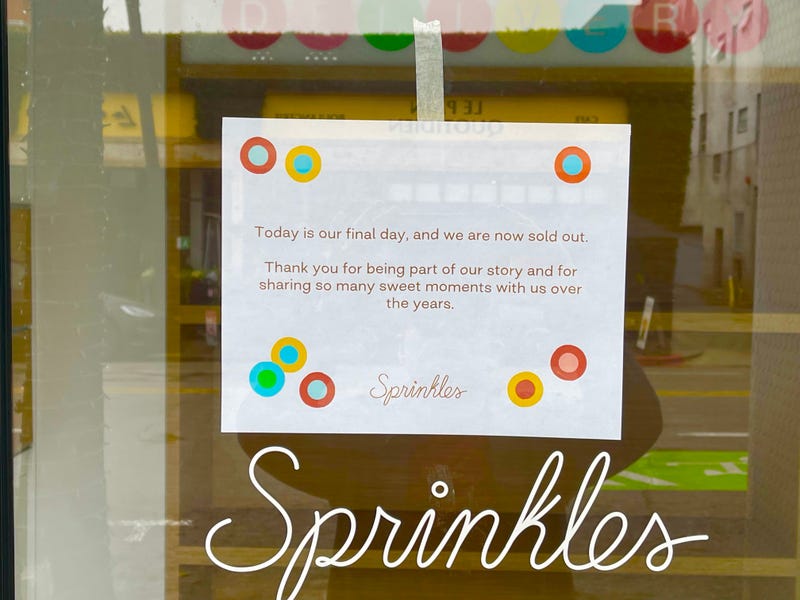 DELIVERY
LE PAIN
QUOTIDIEN
BOULANGERIE
CAFE
Today is our final day, and we are now sold out.
Thank you for being part of our story and for
sharing so many sweet moments with us over
the years.
Sprinkles
Sprinkles